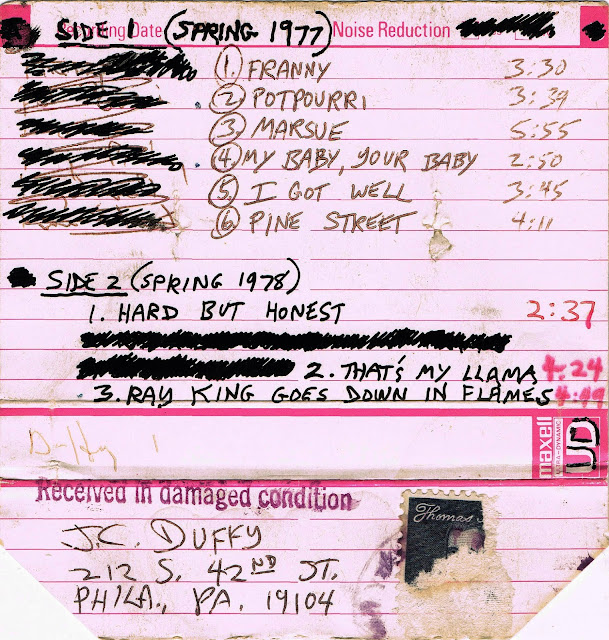 SIDE 1 (SPRING 1977) Noise Reduction
1. FRANNY 3:30
2. POTPOURRI 3:39
3. MARSUE 5:55
4. MY BABY, YOUR BABY 2:50
5. I GOT WELL 3:45
6. PINE STREET 4:11
SIDE 2 (SPRING 1978)
1. HARD BUT HONEST 2:37
2. THAT'S MY LLAMA 4:24
3. RAY KING GOES DOWN IN FLAMES 4:49
Duffy 1
maxell UD
Received in damaged condition
Thomas
J.C. DUFFY
212 S. 42ND ST.
PHILA., PA. 19104